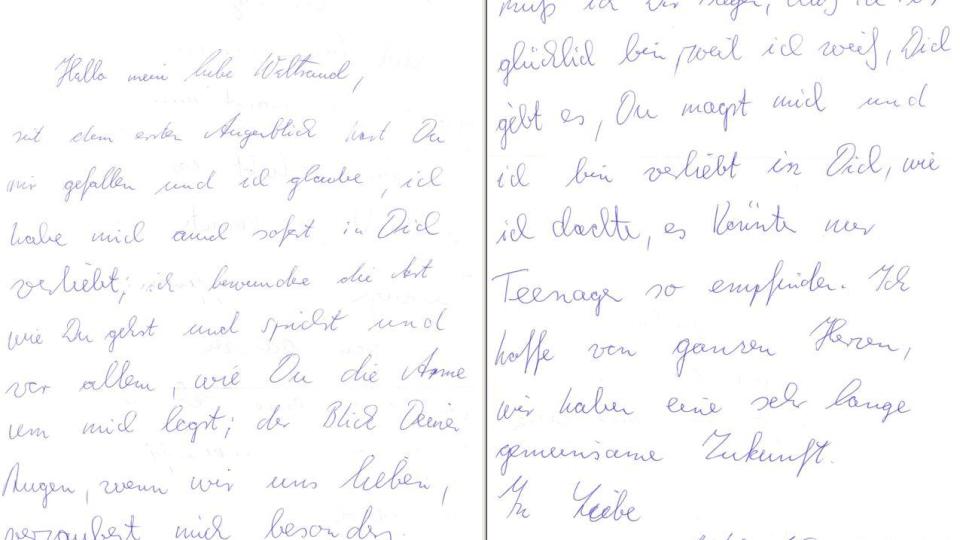 Hallo mein liebe Waltraud,
seit dem ersten Augenblick hast Du
mir gefallen und ich glaube, ich
habe mich auch sofort in Dich
verliebt; ich bewundre die Art
wie Du gehst und sprichst und
vor allem, wie Du die Arme
um mich legst; der Blick Deiner
Augen, wenn wir uns lieben,
verzaubert mich besonders.
muß ich Dir sagen, daß ich so
glücklich bin, weil ich weiß, Dich
gibt es, Du magst mich und
ich bin verliebt in Dich, wie
ich dachte, es könnte nur
Teenager so empfinden. Ich
hoffe von ganzen Herzen,
wir haben eine sehr lange
gemeinsame Zukunft.
In Liebe